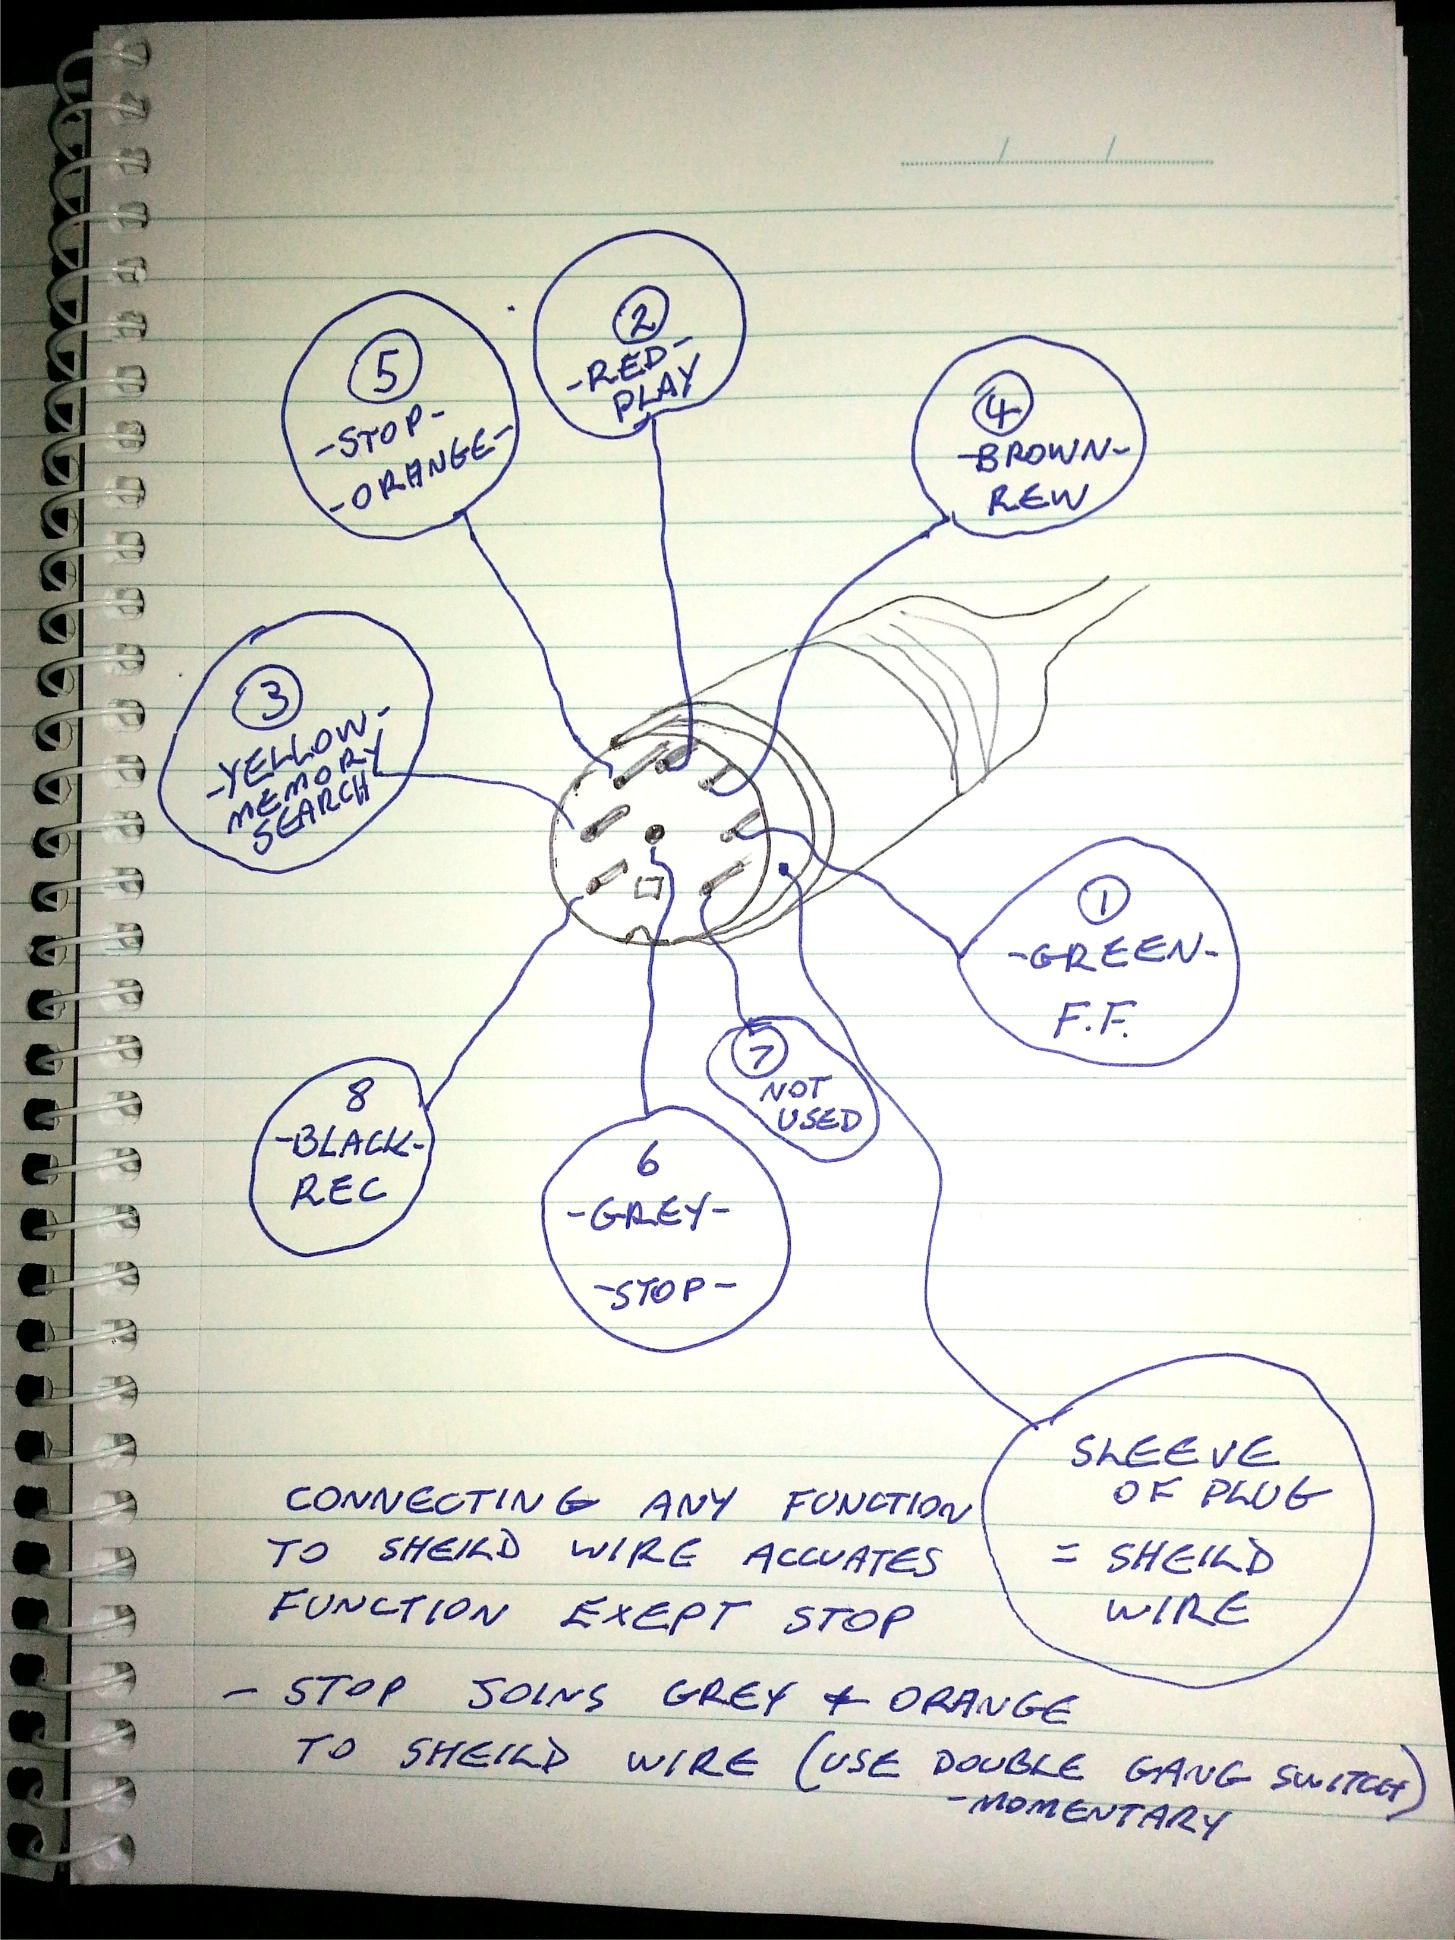 2
-RED-
PLAY
5
-STOP-
-ORANGE-
4
-BROWN-
REW
3
-YELLOW-
MEMORY
SEARCH
1
-GREEN-
F.F.
7
NOT
USED
8
-BLACK-
REC
6
-GREY-
-STOP-
SLEEVE
OF PLUG
= SHEILD
WIRE
CONNECTING ANY FUNCTION
TO SHEILD WIRE ACCUATES
FUNCTION EXEPT STOP
- STOP JOINS GREY & ORANGE
TO SHEILD WIRE (USE DOUBLE GANG SWITCH)
-MOMENTARY